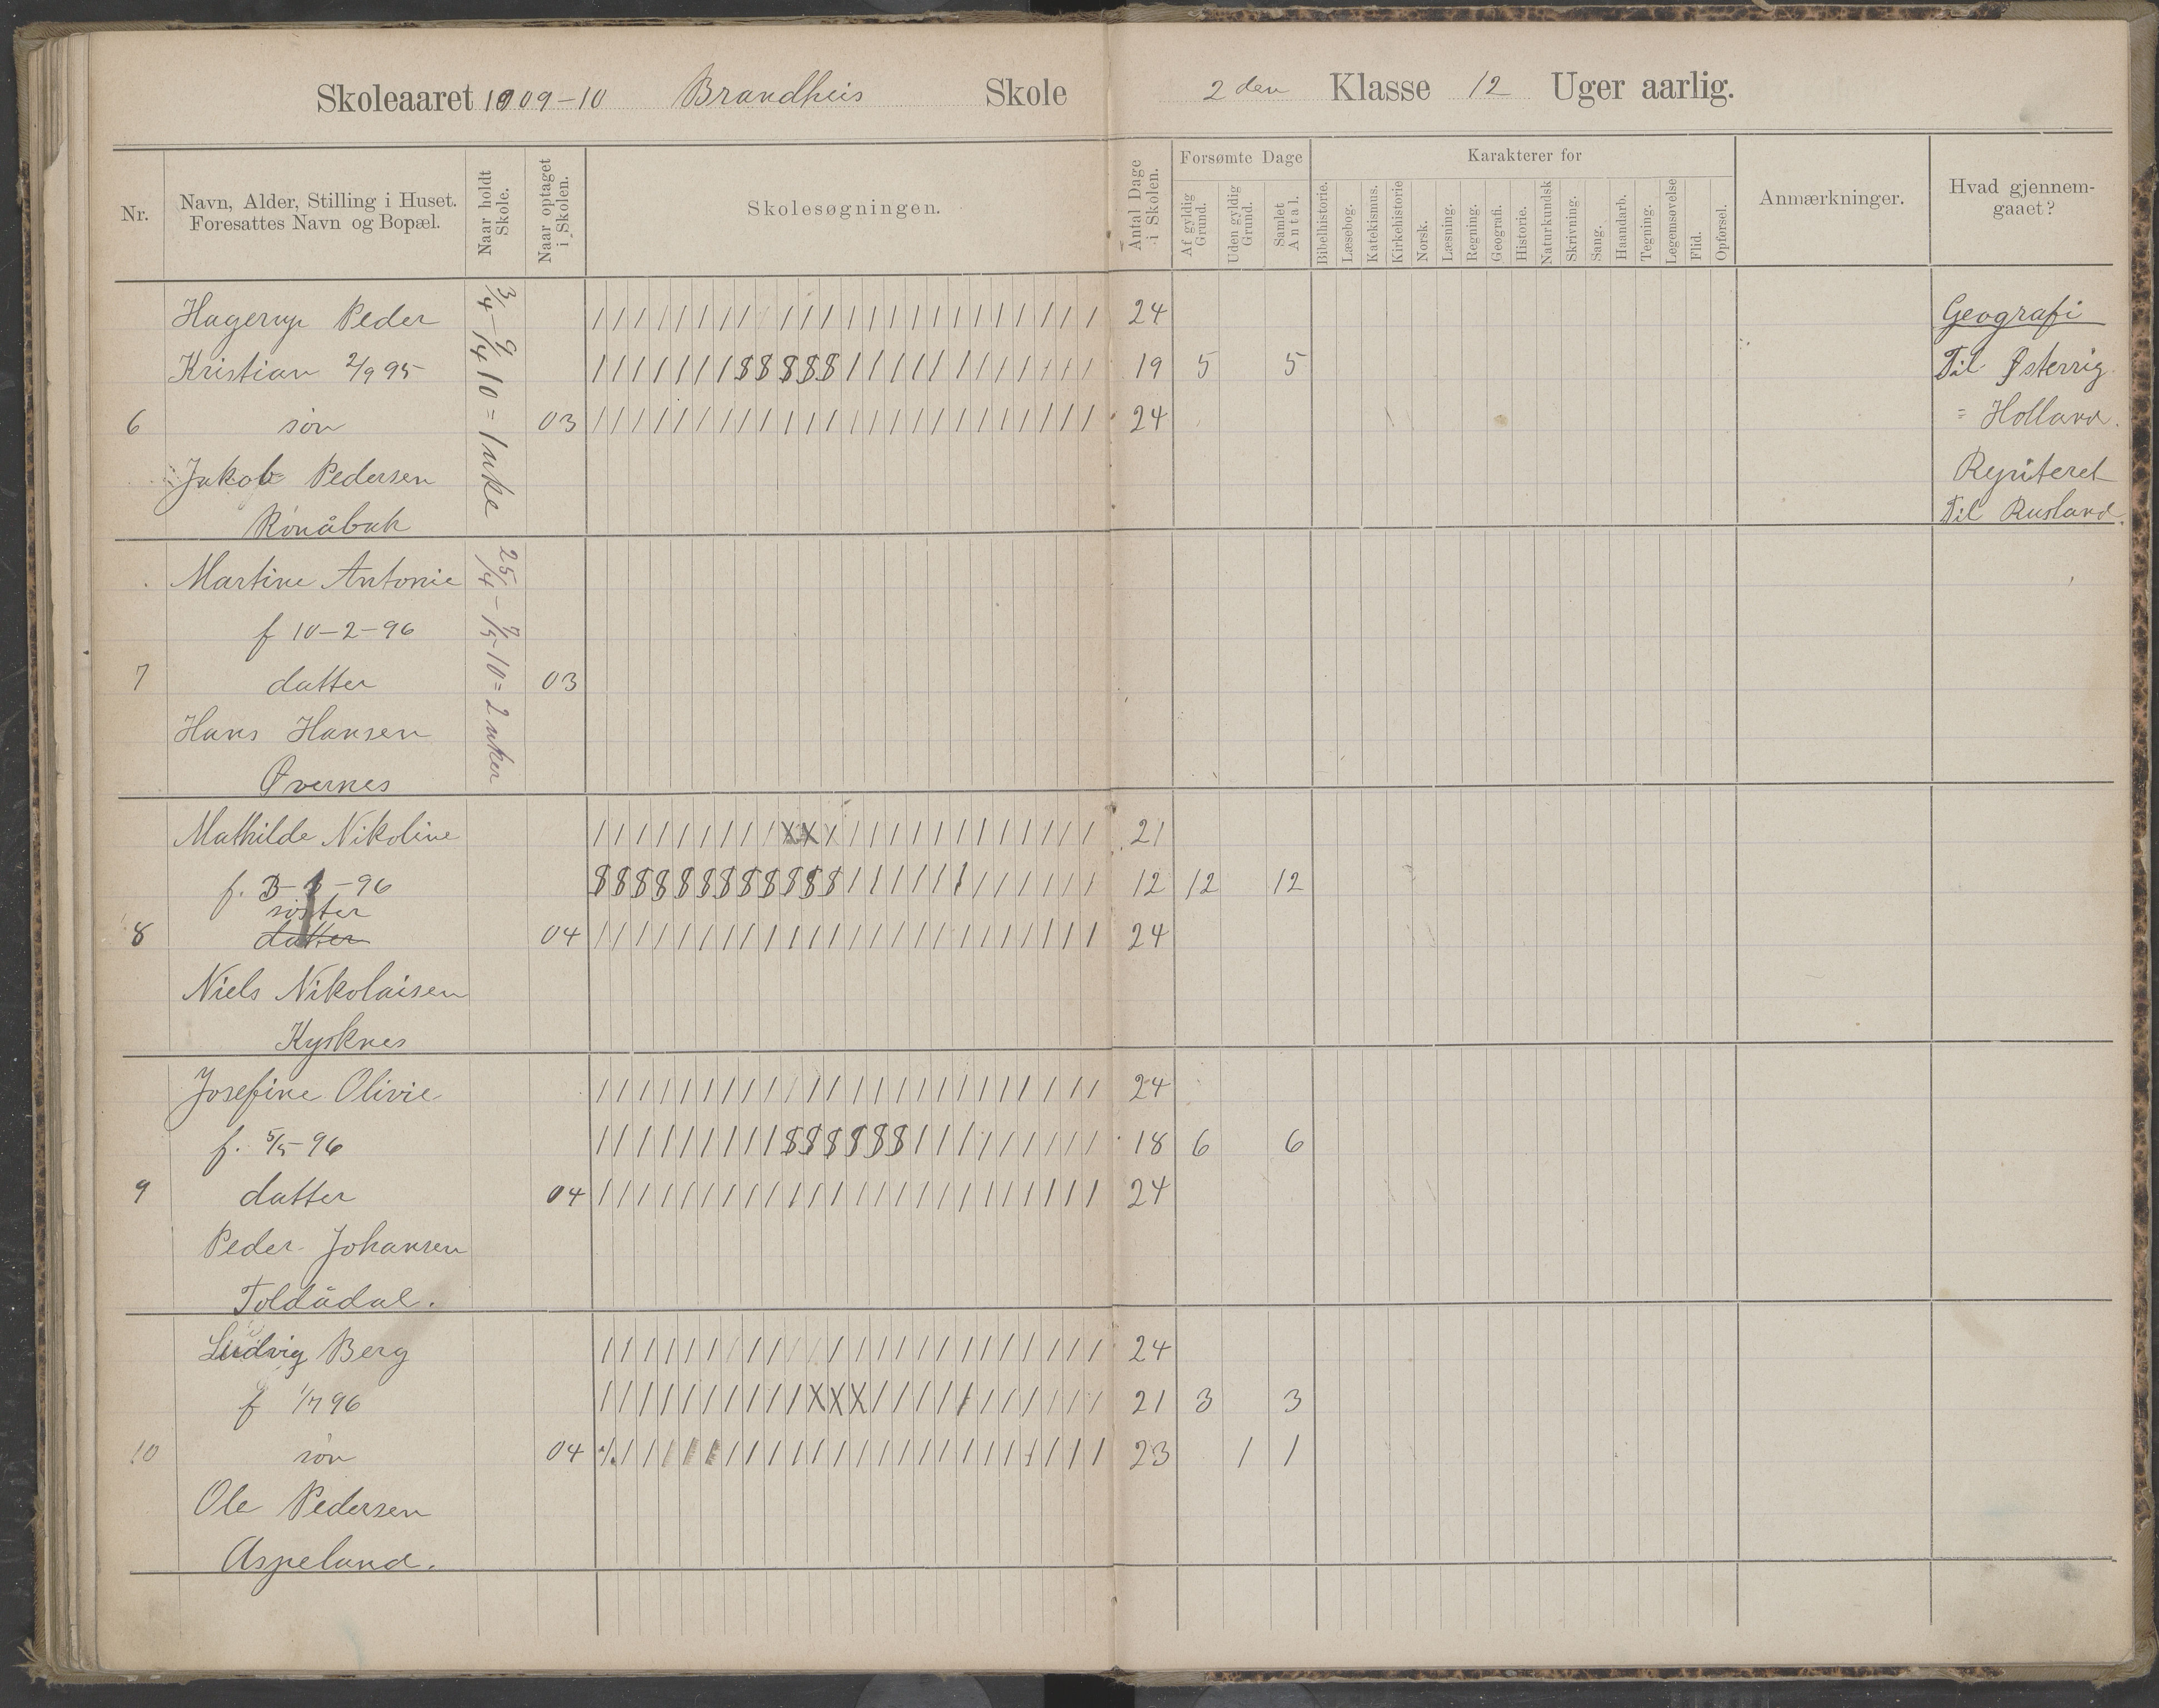 Skoleaaret 1909-10 Brandheis Skole 2den Klasse 12 Uger aarlig.
Nr.
Navn, Alder, Stilling i Huset.
Foresattes Navn og Bopæl.
Naar holdt
Skole.
Naar optaget
i Skolen.
Skolesøgningen.
Antal Dage
i Skolen.
Forsømte Dage
Af gyldig
Grund.
Uden gyldig
Grund.
Samlet
Antal.
Karakterer for
Bibelhistorie.
Læsebog.
Katekismus.
Kirkehistorie
Norsk.
Læsning.
Regning.
Geografi.
Historie.
Naturkundsk
Skrivning.
Sang.
Haandarb.
Tegning.
Legemsøvelse
Flid.
Opførsel.
Anmærkninger.
Hvad gjennem-
gaaet?
3/4-9/4 10=1 uke
25/4-7/5-10=2 uker
Hagerup Peder 24 Geografi
Kristian 2/9 95 19 5 5 Til Østerrig
6 søn 03 24 = Holland.
Jakob Pedersen Repiteret
Rónåbak Til Rusland.
Martine Antonie
f 10-2-96
7 datter 03
Hans Hansen
Øvernes
Mathilde Nikoline 21
f. -96 12 12 12
søster
8 datter 04 24
Niels Nikolaisen
Kysknes
Josefine Olivie 24
f. 5/5-96 18 6 6
9 datter 04 24
Peder Johansen
Toldådal.
Ludvig Berg 24
f 1/7 96 21 3 3
10 søn 04 23 1 1
Ole Pedersen
Aspeland.